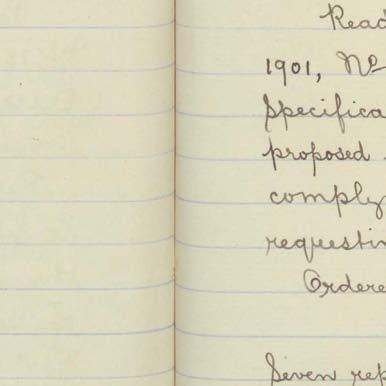 Read
1901, No
Specifica
proposed
comply
requestin
Ordere
Seven rep